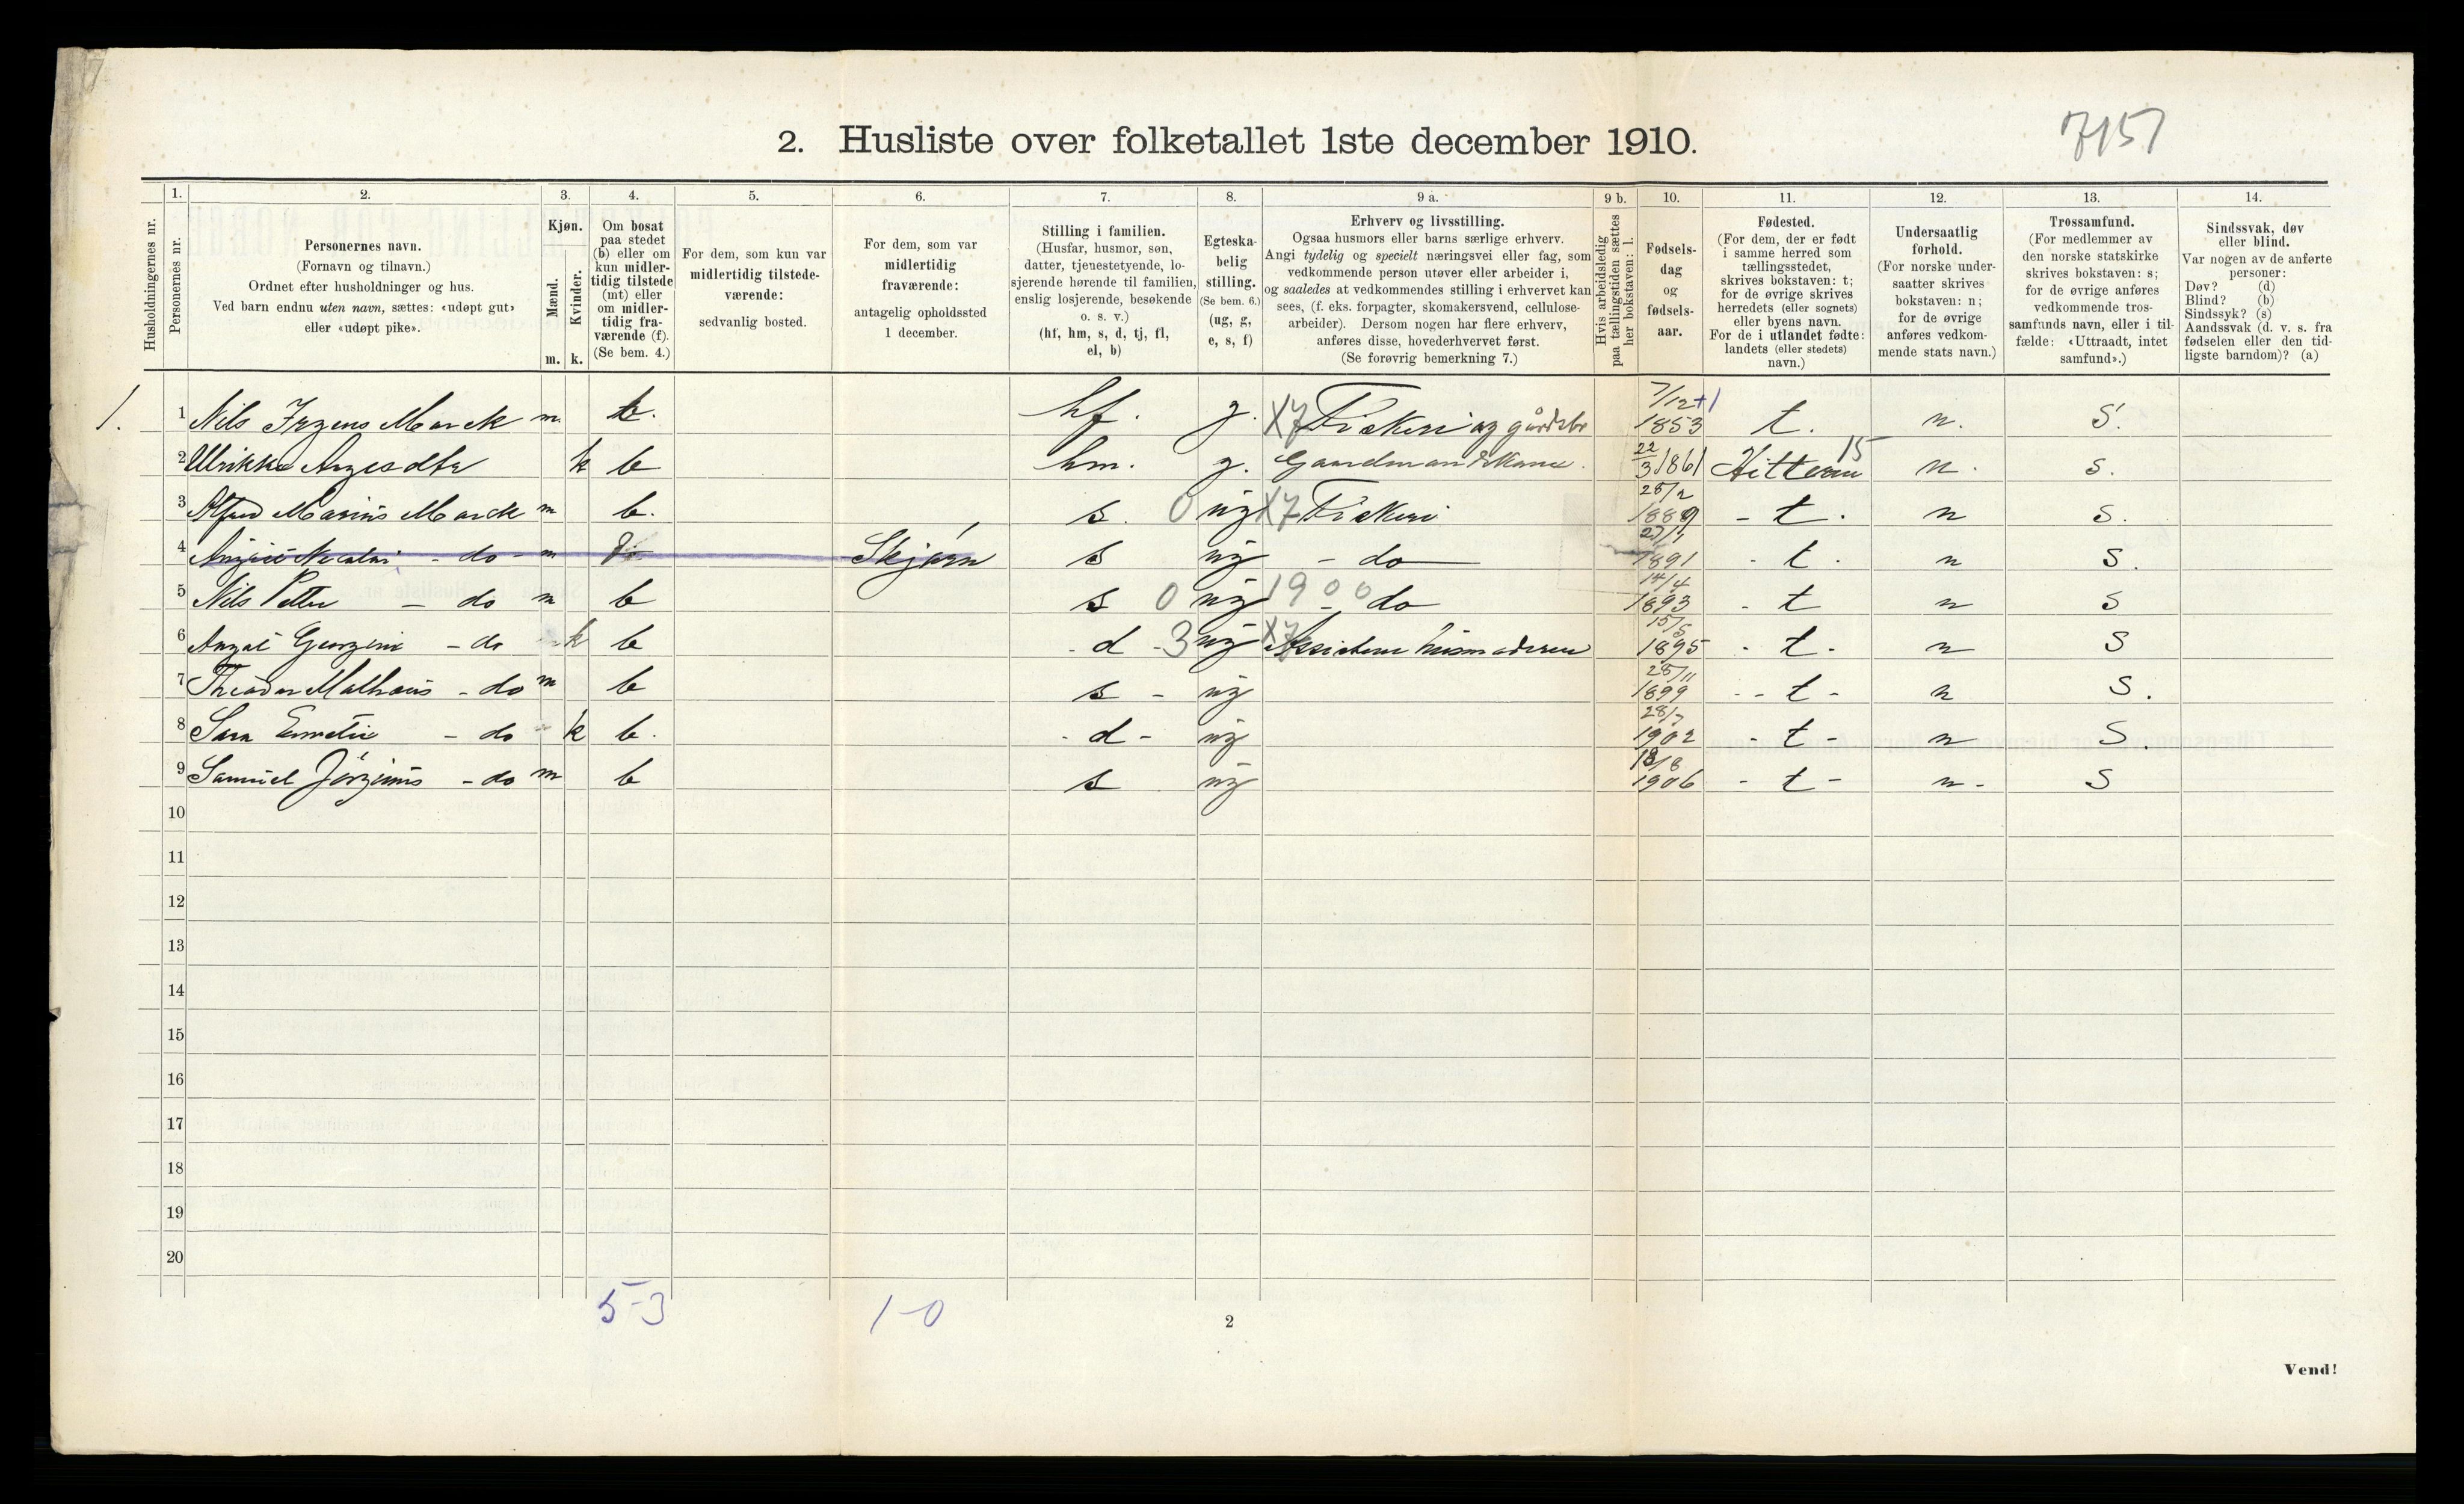 7157
2. Husliste over folketallet 1ste december 1910.
1. 2. 3. 4. 5. 6. 7. 8. 9 a. 9 b. 10. 11. 12. 13. 14.
Husholdningernes nr.
Personernes nr.
Personernes navn.
(Fornavn og tilnavn.)
Ordnet efter husholdninger og hus.
Ved barn endnu uten navn, sættes: «udøpt gut»
eller «udøpt pike».
Kjøn.
Mænd.
Kvinder.
m. k.
Om bosat
paa stedet
(b) eller om
kun midler-
tidig tilstede
(mt) eller
om midler-
tidig fra-
værende (f).
(Se bem. 4.)
For dem, som kun var
midlertidig tilstede-
værende:
sedvanlig bosted.
For dem, som var
midlertidig
fraværende:
antagelig opholdssted
1 december.
Stilling i familien.
(Husfar, husmor, søn,
datter, tjenestetyende, lo-
sjerende hørende til familien,
enslig losjerende, besøkende
o. s. v.)
(hf, hm, s, d, tj, fl,
el, b)
Egteska-
belig
stilling.
(Se bem. 6.)
(ug, g,
e, s, f)
Erhverv og livsstilling.
Ogsaa husmors eller barns særlige erhverv.
Angi tydelig og specielt næringsvei eller fag, som
vedkommende person utøver eller arbeider i,
og saaledes at vedkommendes stilling i erhvervet kan
sees, (f. eks. forpagter, skomakersvend, cellulose-
arbeider). Dersom nogen har flere erhverv,
anføres disse, hovederhvervet først.
(Se forøvrig bemerkning 7.)
Hvis arbeidsledig
paa tællingstiden sættes
her bokstaven: l.
Fødsels-
dag
og
fødsels-
aar.
Fødested.
(For dem, der er født
i samme herred som
tællingsstedet,
skrives bokstaven: t;
for de øvrige skrives
herredets (eller sognets)
eller byens navn.
For de i utlandet fødte:
landets (eller stedets)
navn.)
Undersaatlig
forhold.
(For norske under-
saatter skrives
bokstaven: n;
for de øvrige
anføres vedkom-
mende stats navn.)
Trossamfund.
(For medlemmer av
den norske statskirke
skrives bokstaven: s;
for de øvrige anføres
vedkommende tros-
samfunds navn, eller i til-
fælde: «Uttraadt, intet
samfund».)
Sindssvak, døv
eller blind.
Var nogen av de anførte
personer:
Døv? (d)
Blind? (b)
Sindssyk? (s)
Aandssvak (d. v. s. fra
fødselen eller den tid-
ligste barndom)? (a)
1. 1 Nils Marck m b. hf. g. X7 Fiskeri og gårdsbr 7/12 +1 1853 t. n. S.
2 Ulrikke k b hm. g. 22/3 1861 Hitteren 15 n. s.
3 Alfred Marius Marck m b. s. 0 ug X7 Fiskeri 1889 - t. n S.
4 - do - m Skjørn s ug - do 1891 - t. n S.
5 Nils Petter - do m b s 0 ug 1900 - do 14/4 1893 - t n S
6 - do k b d 3 ug X7 Assisterer husmoderen 15/5 1895 - t - n S
7 - do m b s - ug 28/11 1899 - t - n S.
8 Sara - do k b. - d - ug 1902 - t - n S.
9 Samuel - do m b s ug 18/8 1906 - t - n - S
10
11
12
13
14
15
16
17
18
19
20
5-3 1-0
2
Vend!